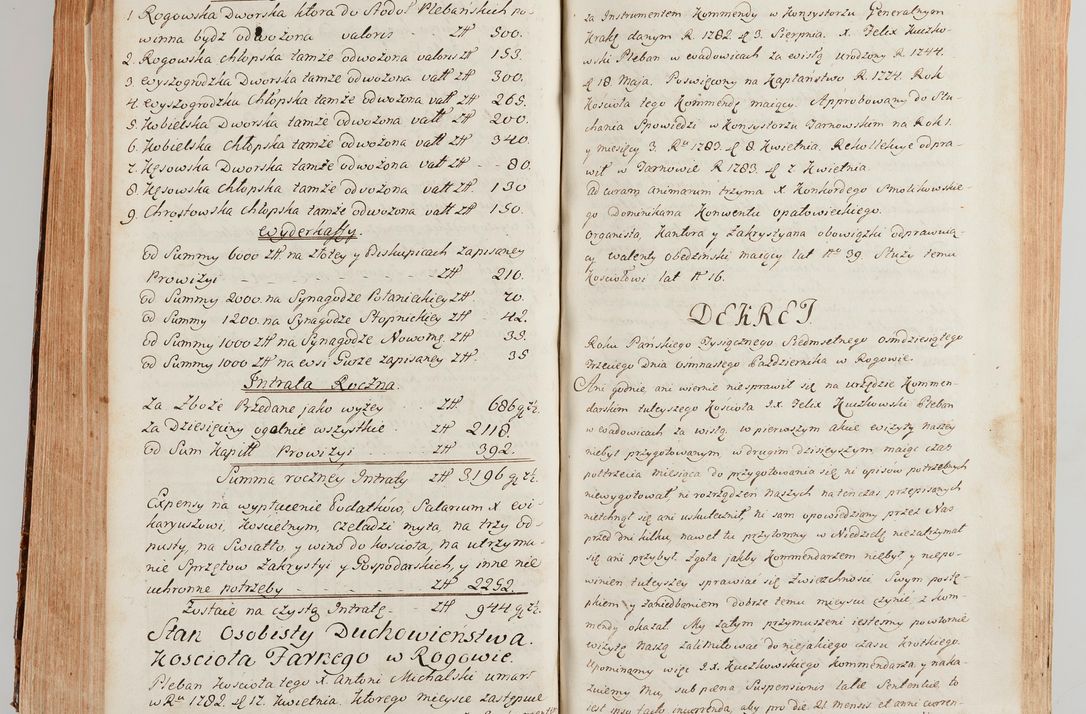 1 Rogowska Dworska ktora do Stodoł Plebańskich po-
winna bydz odwożona valoris - Złł 500.
2. Rogowska chłopska tamże odwożona valoris Złł 153.
3. Wyszogrodzka Dworska tamże odwożona vatt Złł 300.
4. Wyszogrodzka Chłopska tamże odwożona vatt Złł 265.
5. Kobielska Dworska tamże odwożona vatt Złł 200.
6. Kobielska Chłopska tamże odwożona vatt Złł 340.
7. Kęsowska Dworska tamże odwożona vatt Złł 80.
8. Kęsowska chłopska tamże odwożona vatt Złł 130
9. Chrostowska chłopska tamże odwożona vatt Złł 150.
Wyderkaffy.
Od Summy 6000 Złł na Złotey y Biskupicach zapisaney
Prowizyi - Złł 210.
Od Summy 2000. na Synagodze Połanieckiey Złł 70.
Od Summy 1200. na Synagodze Stopnickiey Złł 42.
Od Summy 1000 Złł na Synagodze Nowomę. Złł 35.
Od Summy 1000 Złł na wsi Gurze zapisaney Złł 35
Intrata Roczna.
Za Zboże Przedane jako wyżey Złł 686
Za Dziesięciny ogolnie wszystkie Złł 2118.
Od Sum Kapitt Prowizyi Złł 392.
Summa roczney Intraty Złł 3196
Expensy na wypłacenie Podatków, Salarium X Wi-
karyuszowi, Kościelnym, Czeladzi myta, na trzy od-
pusty, na Światło, y wino do kościoła, na utrzyma-
nie Sprzętow Zakrystyi y Gospodarskich, y inne nie
uchronne potrzeby - Złł 2252.
Zostaie na czystą Intratę - Złł 944
Stan Osobisty Duchowieństwa.
Kościoła Farnego w Rogowie.
Pleban Kościoła tego X. Antoni Michalski umarł
w Rᵘ 1782. d 17. Kwietnia. Ktorego mieysce zastępuie
za Instrumentem Kommendy w Konsystorzu Generalnym
Krakł danym R 1782 d 3. Sierpnia. X. Felix Kuczko-
wski Pleban w Wadowicach za Wisłą urodzony R. 1744.
d 18 Maja. Poswięcony na Kapłaństwo R 1774. Rok
Kościoła tego Kommendę maiący. Approbowany do Słu-
chania Spowiedzi w Konsystorzu Tarnowskim na Rok 1.
y miesięcy 3. Rᵘ 1783 d 8 Kwietnia. Rekollekcye odpra-
wił w Tarnowie R 1783. d 7 Kwietnia.
ad curam animarum trzyma X Konkordego Smolikowskie-
go Dominikana Konwentu Opatowieckiego.
Organista, Kantora y Zakrystyana obowiązki odprawuią-
cy Walenty Obedziński maiący lat Nᵒ 39. Służy temu
Kościołowi lat Nᵒ 16.
DEKRET.
Roku Pańskiego Tysiącznego Siedmsetnego osmdziesiątego
Trzeciego Dnia osmnastego Października w Rogowie.
Ani godnie, ani wiernie nie sprawił się na urzędzie Kommen-
darskim tuteyszego Kościoła J.X. Felix Kuczkowski Pleban
w Wadowicach za Wisłą. w pierwszym akcie wizyty naszey
niebył przygotowanym. w drugim dzisieyszym maiąc czas
połtrzecia miesiąca do przygotowania się, ni opisów potrzebnych
niewygotował, ni rozrządzeń Naszych na tenczas przepisanych
nietchnął się ani uskutecznił, ni sam opowiedziany przez Nas
przed dni kilku, nawet tu przytomny w Niedzielę niezatrzymał
się ani przybył. Zgoła jakby Kommendarzem niebył y niepo-
winien tuteyszey sprawiać się Zwierzchności Swym postę-
pkiem y zaniedbaniem dobrze temu mieyscu czynić, z kom-
mendy okazał. My zatym przymuszeni iestesmy powtornie
wizytę Naszą zalimitować do nieiakiego czasu krotkiego.
Upominamy więc J.X. Kuczkowskiego Kommendarza, y naka-
zuiemy Mu, sub pæna Suspensionis latæ Sententiæ to
iest ipso facto incurrenda, aby pro die 21 mensis et anni curren-